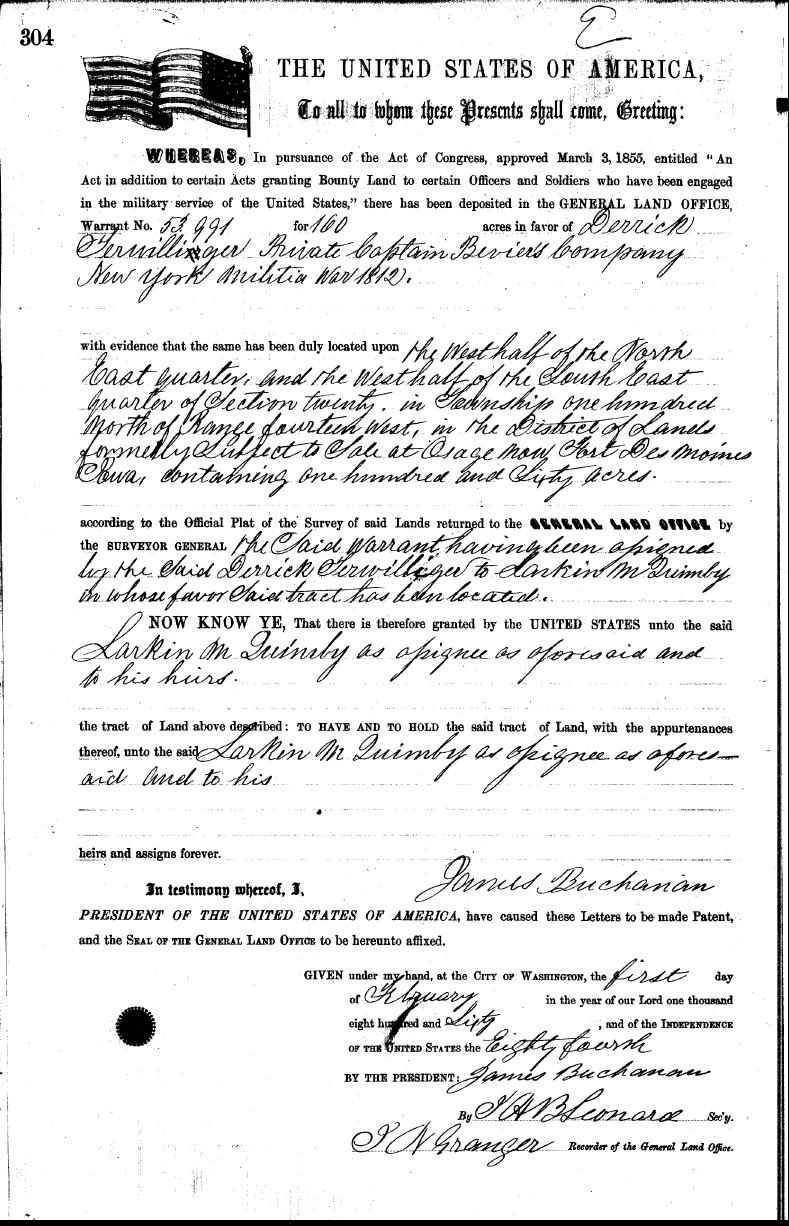 304
E
THE UNITED STATES OF AMERICA,
To all to whom these Presents shall come, Greeting:
WHEREAS, In pursuance of the Act of Congress, approved March 3, 1855, entitled "An
Act in addition to certain Acts granting Bounty Land to certain Officers and Soldiers who have been engaged
in the military service of the United States," there has been deposited in the GENERAL LAND OFFICE,
Warrant No. 53,991 for 160 acres in favor of Derrick
Terwilliger Private Captain Bevier's Company
New York Militia War 1812.
with evidence that the same has been duly located upon the West half of the North
East quarter, and the West half of the South East
quarter of Section twenty. in Township one hundred
North of Range fourteen West, in the District of Lands
formerly Subject to Sale at Osage now Fort Des Moines
Iowa, containing one hundred and Sixty acres.
according to the Official Plat of the Survey of said Lands returned to the GENERAL LAND OFFICE by
the SURVEYOR GENERAL the Said Warrant having been assigned
by the Said Derrick Terwilliger to Larkin M Quimby
in whose favor Said tract has been located.
NOW KNOW YE, That there is therefore granted by the UNITED STATES unto the said
Larkin M Quimby as assignee as aforesaid and
to his heirs.
the tract of Land above described: TO HAVE AND TO HOLD the said tract of Land, with the appurtenances
thereof, unto the said Larkin M Quimby as assignee as afores-
aid and to his
heirs and assigns forever.
In testimony whereof, I, James Buchanan
PRESIDENT OF THE UNITED STATES OF AMERICA, have caused these Letters to be made Patent,
and the SEAL OF THE GENERAL LAND OFFICE to be hereunto affixed.
GIVEN under my hand, at the CITY OF WASHINGTON, the first day
of February in the year of our Lord one thousand
eight hundred and Sixty, and of the INDEPENDENCE
OF THE UNITED STATES the Eighty fourth
BY THE PRESIDENT: James Buchanan
By J A B Leonard Sec'y.
J N Granger Recorder of the General Land Office.